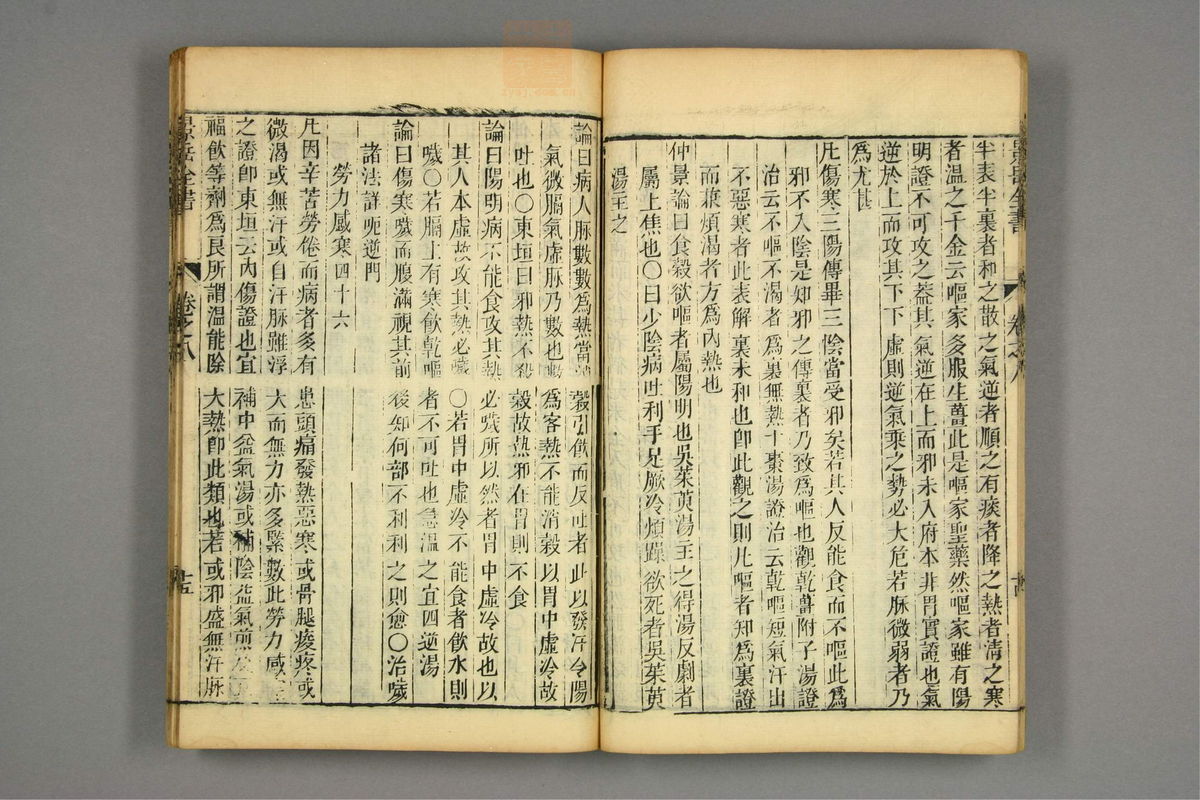 半表半裏者和之散之氣逆者順之有痰者降之熱者清之寒
者溫之千金云嘔家多服生薑此是嘔家聖藥然嘔家雖有陽
明證不可攻之葢其氣逆在上而邪未入府本非胃實證也氣
逆於上而攻其下下虛則逆氣乘之勢必大危若脉微弱者乃
為尤甚
凡傷寒三陽傳畢三陰當受邪矣若其人反能食而不嘔此為
邪不入陰是知邪之傳裏者乃致為嘔也觀乾薑附子湯證
治云不嘔不渴者為裏無熱十棗湯證治云乾嘔短氣汗出
不惡寒者此表解裏未和也卽此觀之則凡嘔者知為裏證
而兼煩渴者方為內熱也
仲景論曰食穀欲嘔者屬陽明也吳茱萸湯主之得湯反劇者
屬上焦也〇曰少陰病吐利手足厥冷煩躁欲死者吳茱萸
湯主之
景岳全書
卷之八
十四
論曰病人脉數數為熱當 穀引食而反吐者此以發汗令陽
氣微膈氣虛脉乃數也數為客熱不能消穀以胃中虛冷故
吐也〇東垣曰邪熱不殺穀故熱邪在胃則不食
論曰陽明病不能食攻其熱必噦所以然者胃中虛冷故也以
其人本虛故攻其熱必噦〇若胃中虛冷不能食者飲水則
噦〇若膈上有寒飲乾嘔者不可吐也急溫之宜四逆湯
論曰傷寒噦而腹滿視其前後知何部不利利之則愈〇治噦
諸法詳呃逆門
勞力感寒四十六
凡因辛苦勞倦而病者多有患頭痛發熱惡寒或骨腿痠疼或
微渴或無汗或自汗脉雖浮大而無力亦多緊數此勞力感
之證卽東垣云內傷證也宜補中益氣湯或補陰益氣煎
福飲等劑為良所謂溫能除大熱卽此類也若或邪盛無汗脉
景岳全書
卷之八
十五